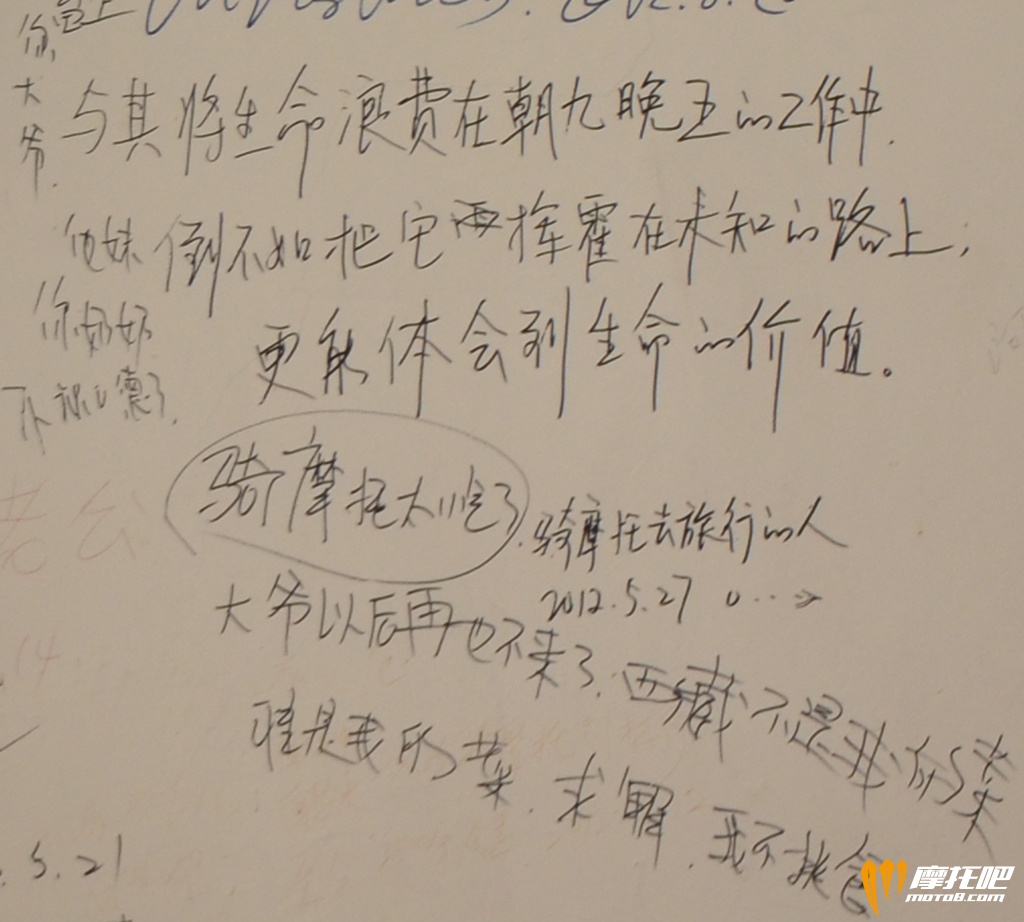 大爷
与其将生命浪费在朝九晚五的工作中.
他妹
倒不如把它再挥霍在未知的路上,
你奶奶
更能体会到生命的价值。
骑摩托太
骑摩托去旅行的人
2012.5.27
大爷以后再也不来了.西藏不是我的菜
谁是我的菜.求解.我不挑食
5.21
14
摩托吧
moto8.com